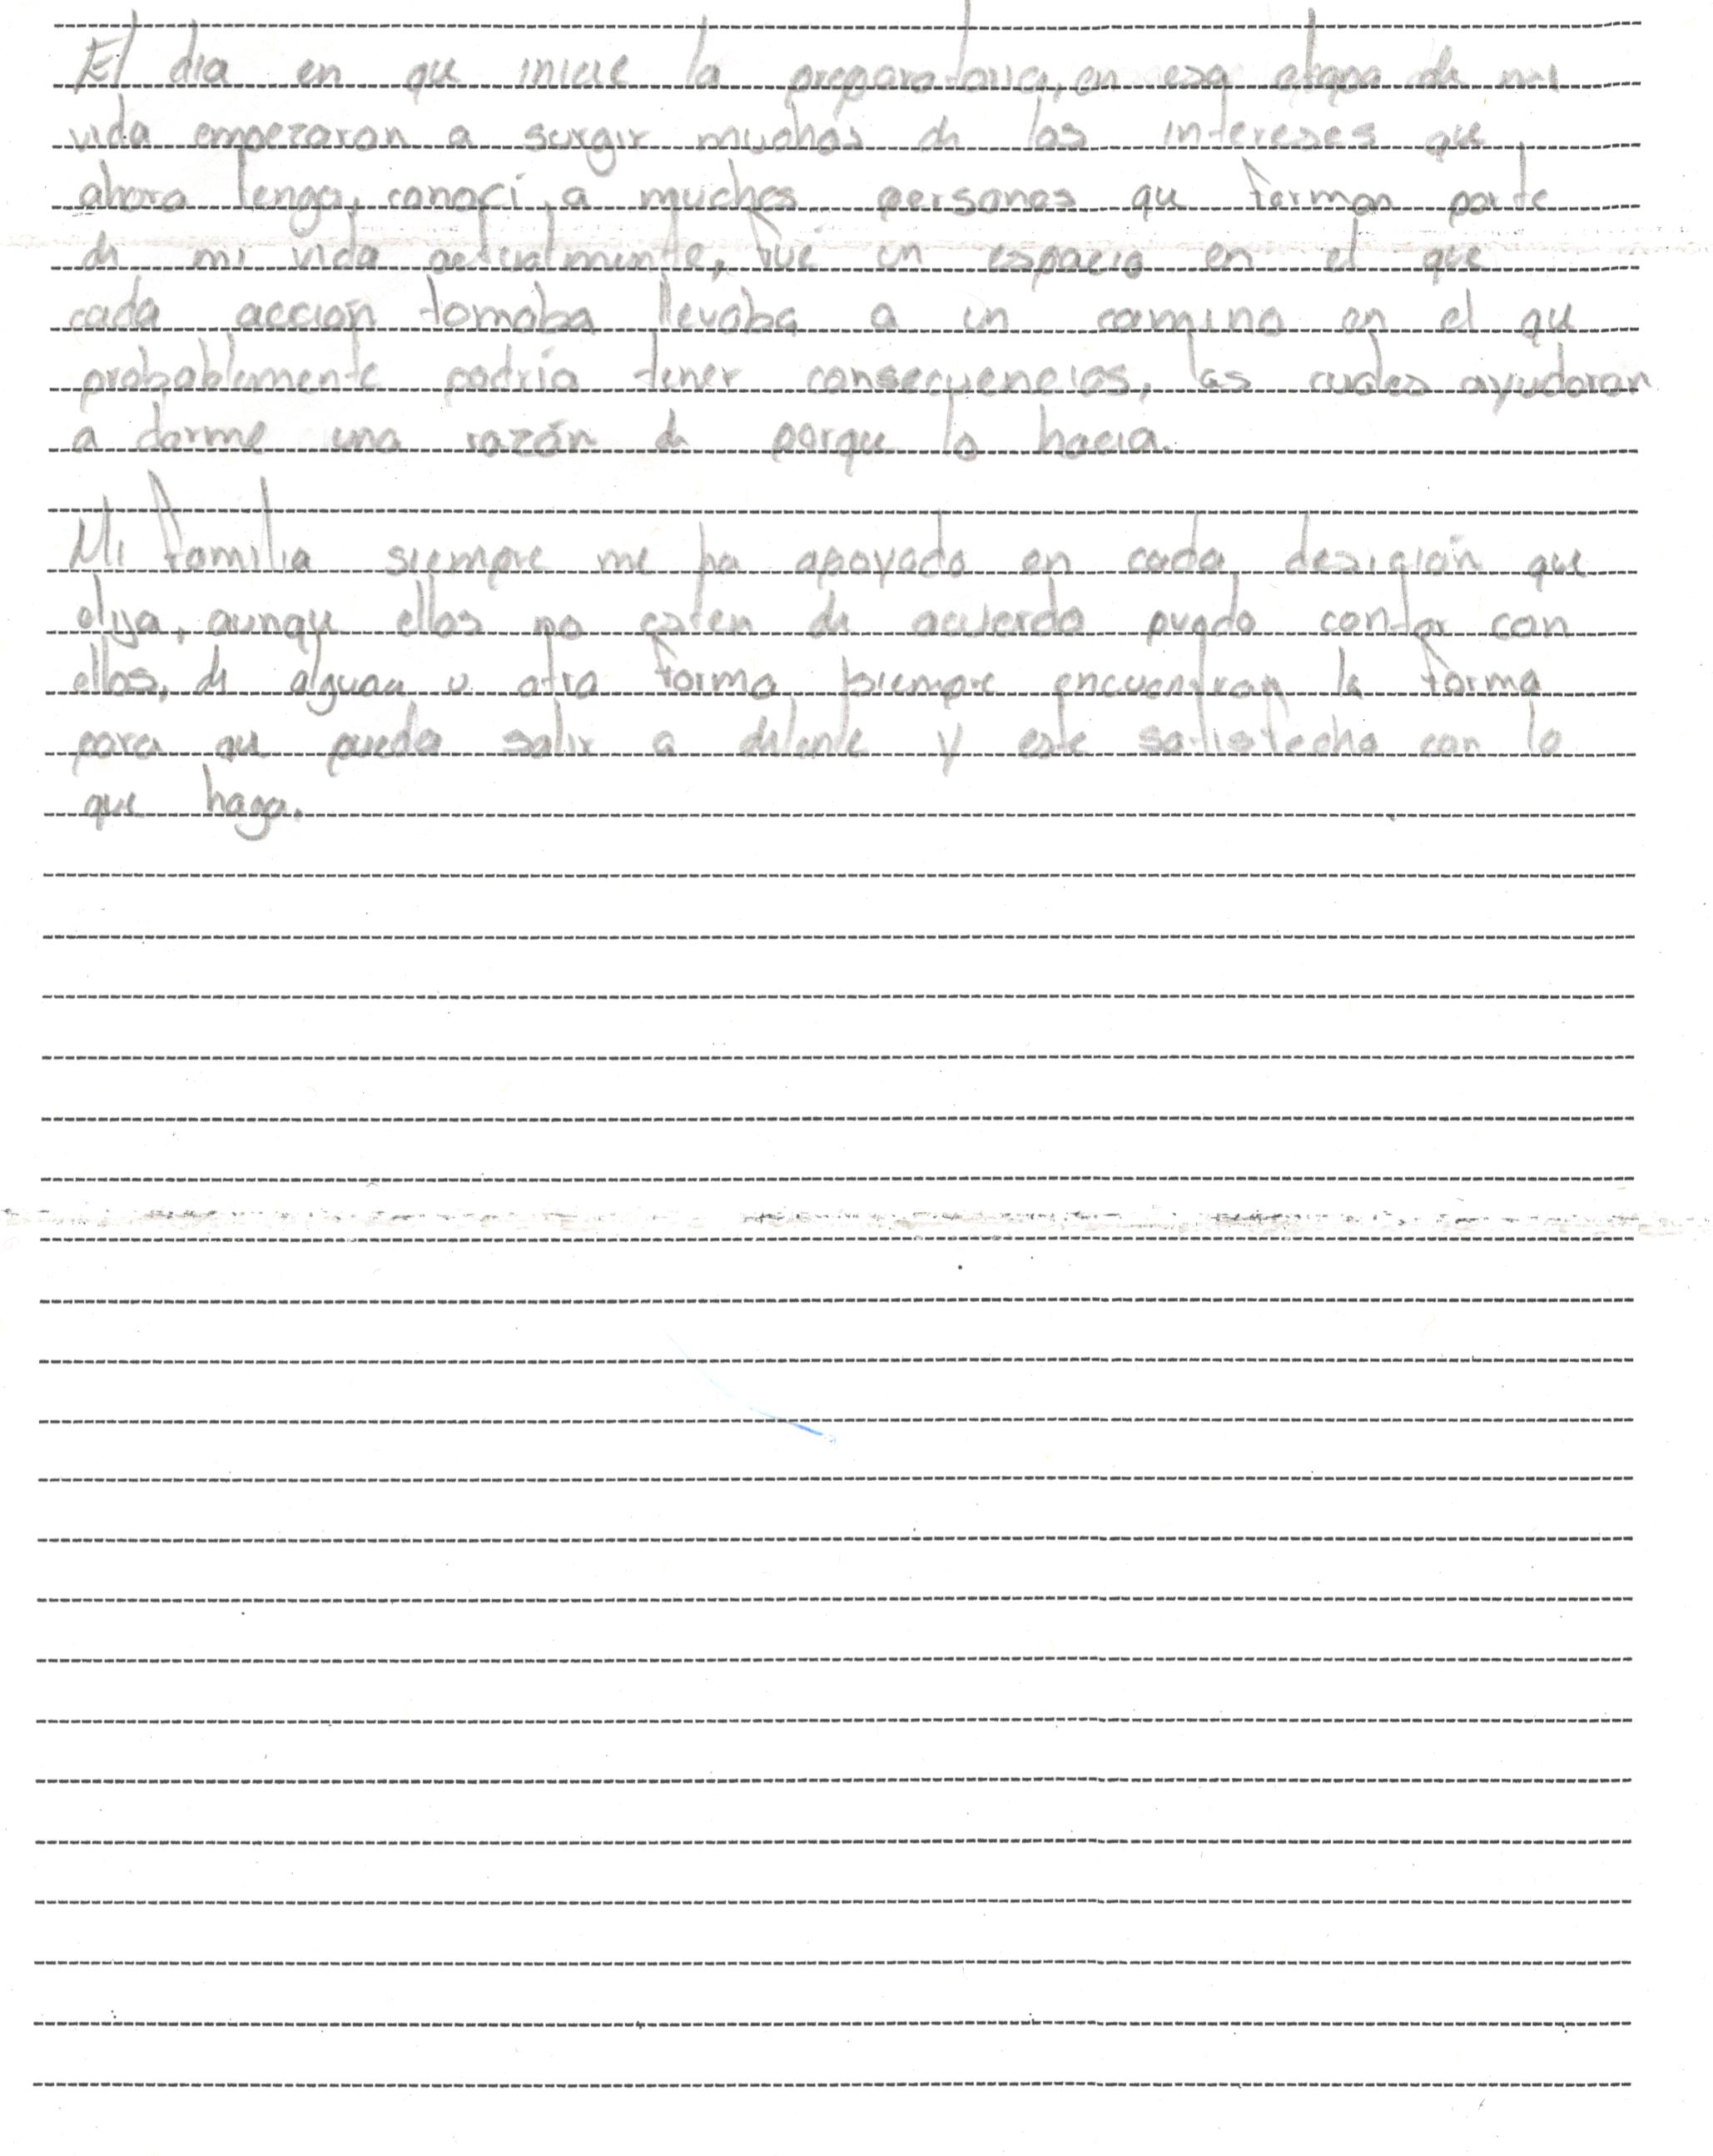 El dia en que inicie la preparatoria, en esa etapa de mi
vida empezaron a surgir muchos de los intereses que
ahora tengo, conoci a muchas personas que forman parte
de mi vida actualmente, fue un espacio en el que
cada acción tomaba llevaba a un camino en el que
probablemente podria tener consecuencias, las cuales ayudaron
a darme una razón de porque lo hacia.
Mi familia siempre me ha apoyado en cada desición que
elija, aunque ellos no esten de acuerdo puedo contar con
ellos, de alguna u otra forma siempre encuentran la forma
para que pueda salir a delante y este satisfecho con lo
que haga.